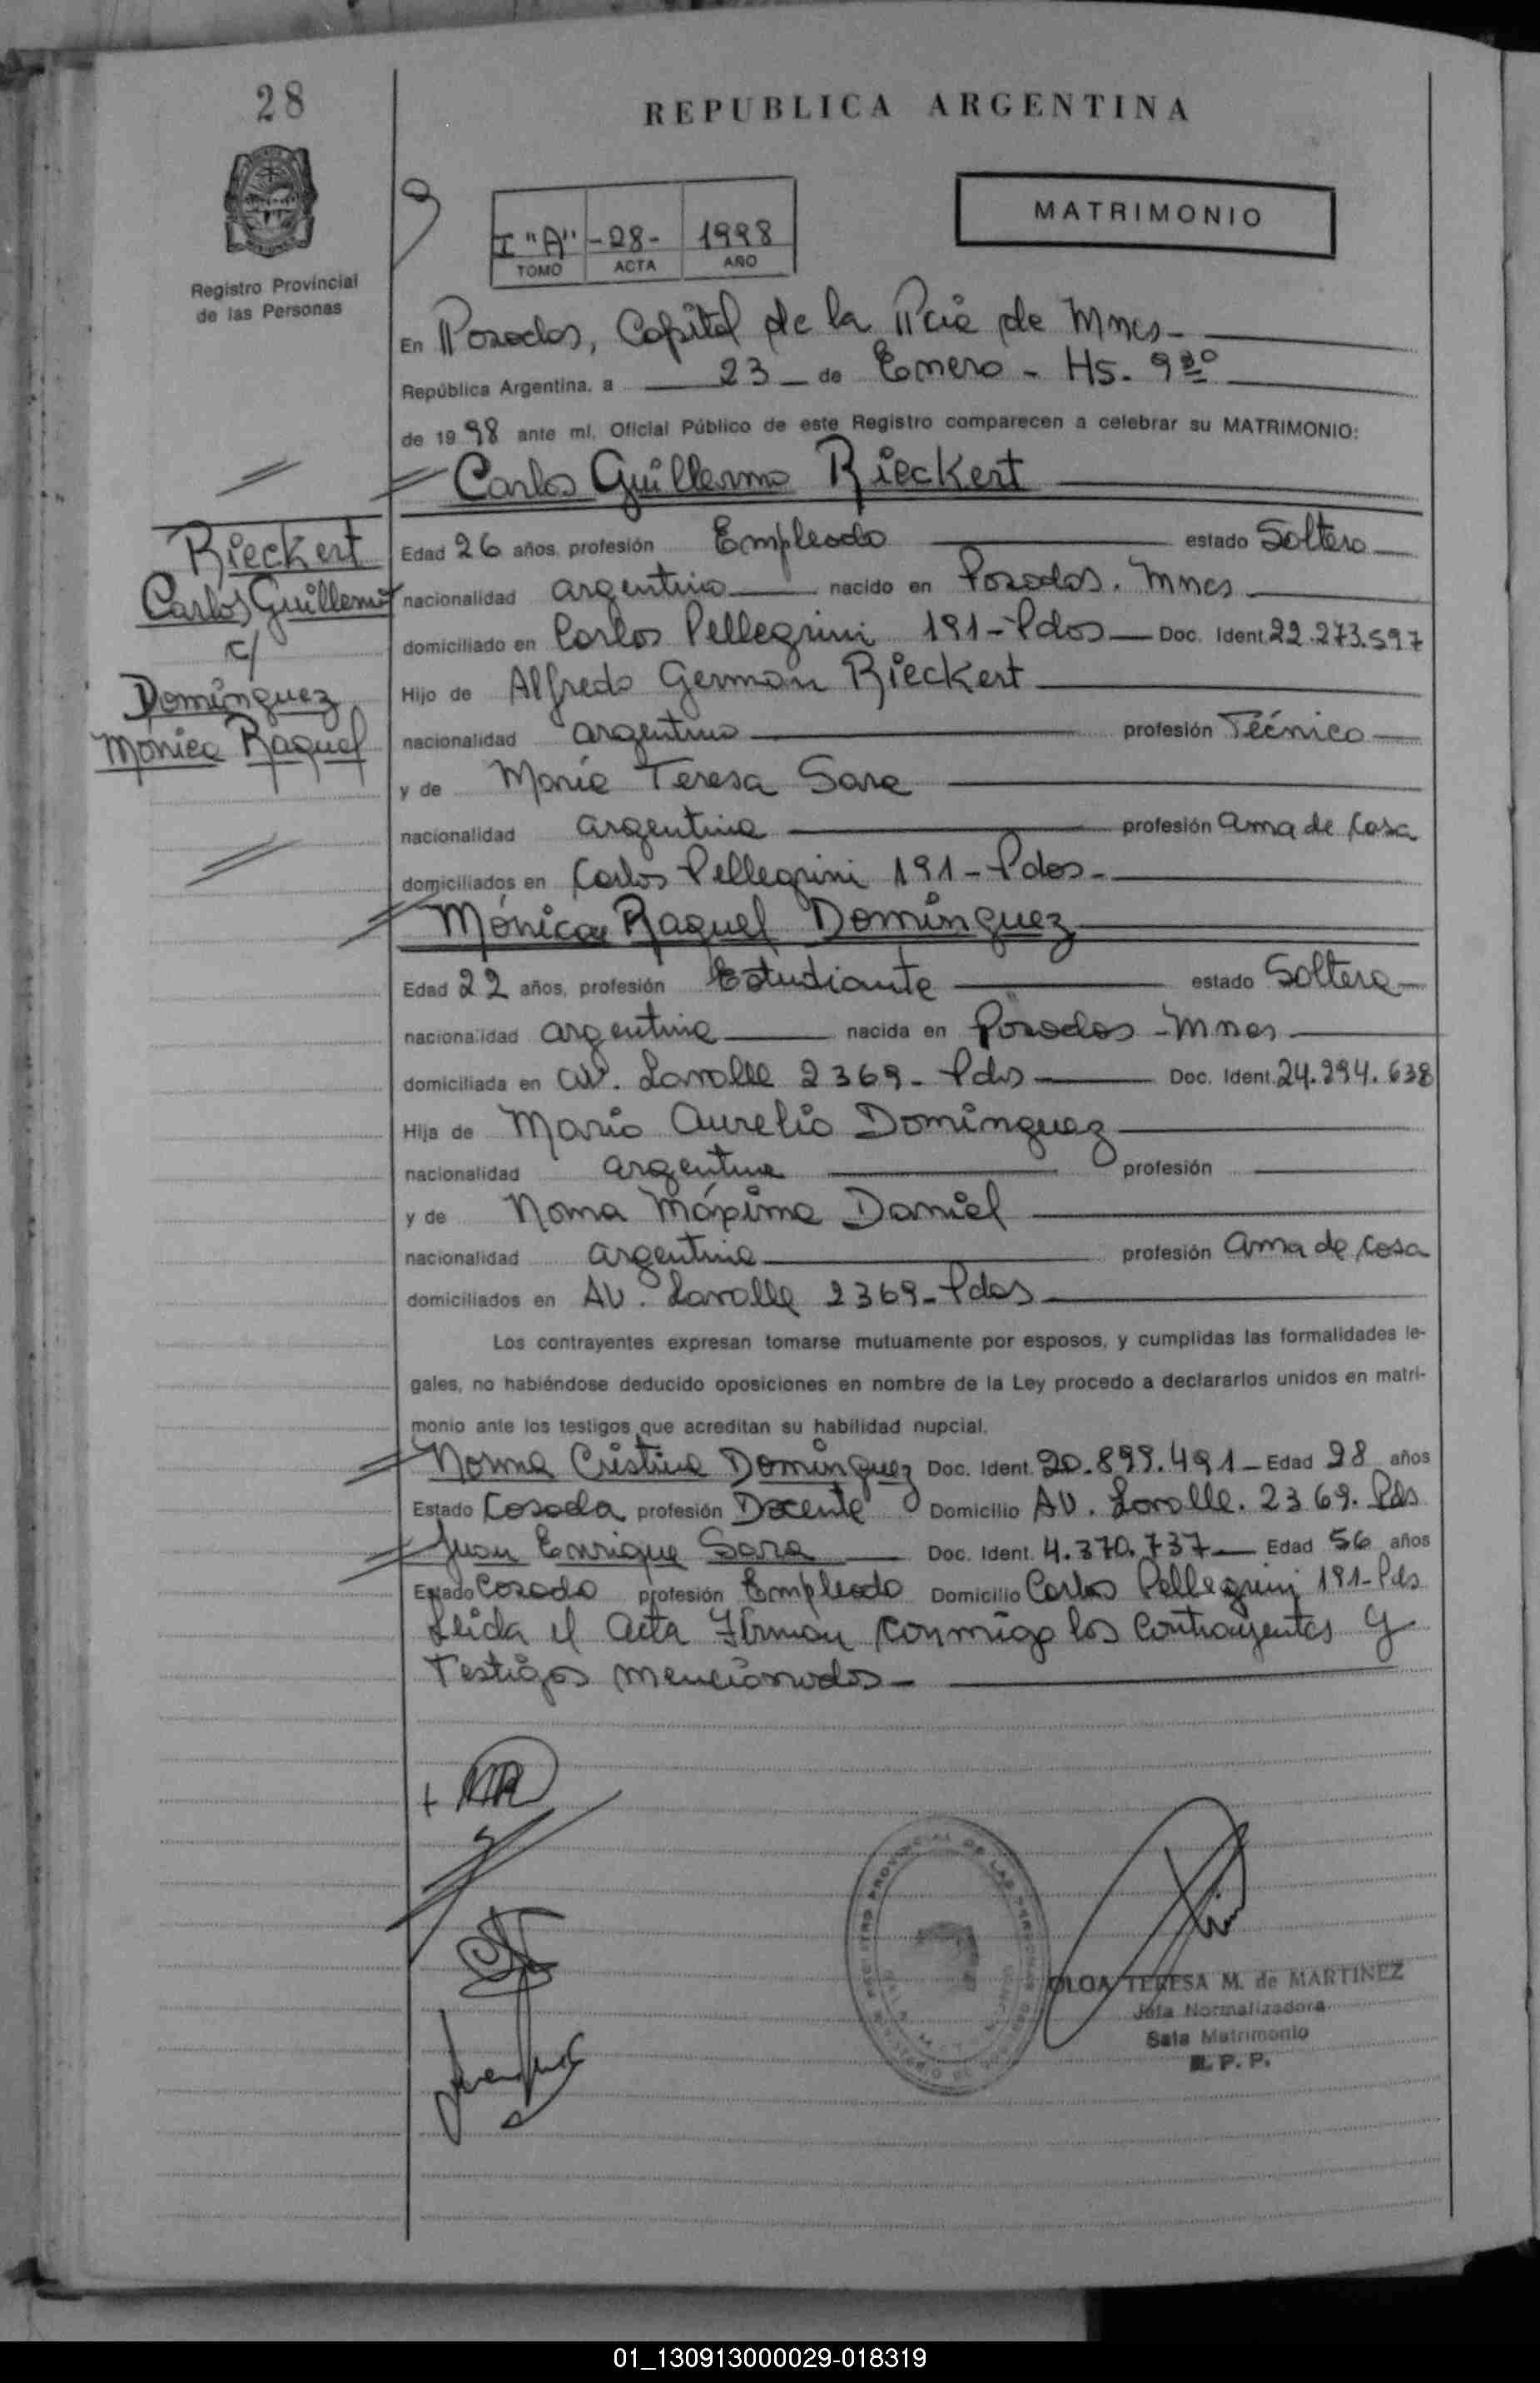 28
REPUBLICA ARGENTINA
MATRIMONIO
I "A" -28- 1998
TOMO ACTA AÑO
Registro Provincial
de las Personas
En Posadas, Capital de la Pcia de Mnes-
República Argentina, a 23 - de Enero - Hs. 9 30
de 19 98 ante mí, Oficial Público de este Registro comparecen a celebrar su MATRIMONIO:
Carlos Guillermo Rieckert
Rieckert
Carlos Guillermo
c/
Domínguez
Mónica Raquel
Edad 26 años, profesión Empleado estado Soltero
nacionalidad argentino nacido en Posadas. Mnes
domiciliado en Carlos Pellegrini 191-Pdas Doc. Ident. 22.273.597
Hijo de Alfredo German Rieckert
nacionalidad argentino profesión Técnico
y de María Teresa Sara
nacionalidad argentina profesión ama de casa
domiciliados en Carlos Pellegrini 191-Pdas-
Mónica Raquel Domínguez
Edad 22 años, profesión Estudiante estado Soltera
nacionalidad argentina nacida en Posadas - Mnes
domiciliada en av. Lavalle 2369- Pdas Doc. Ident. 24.294.638
Hija de Mario Aurelio Domínguez
nacionalidad argentina profesión
y de Norma Máxima Daniel
nacionalidad argentina profesión ama de casa
domiciliados en AV. Lavalle 2369-Pdas
Los contrayentes expresan tomarse mutuamente por esposos, y cumplidas las formalidades le-
gales, no habiéndose deducido oposiciones en nombre de la Ley procedo a declararlos unidos en matri-
monio ante los testigos que acreditan su habilidad nupcial.
Norma Cristina Domínguez Doc. Ident. 20.899.491- Edad 28 años
Estado Casada profesión Docente Domicilio AV. Lavalle. 2369. Pds
Juan Enrique Sara Doc. Ident. 4.370.737 Edad 56 años
Estado Casado profesión Empleado Domicilio Carlos Pellegrini 191-Pds
Leida el acta Firman conmigo los contrayentes y
Testigos mencionados-
REGISTRO PROVINCIAL DE LAS PERSONAS
OLGA TERESA M. de MARTINEZ
Jefa Normalizadora
Sala Matrimonio
R. P. P.
01_130913000029-018319